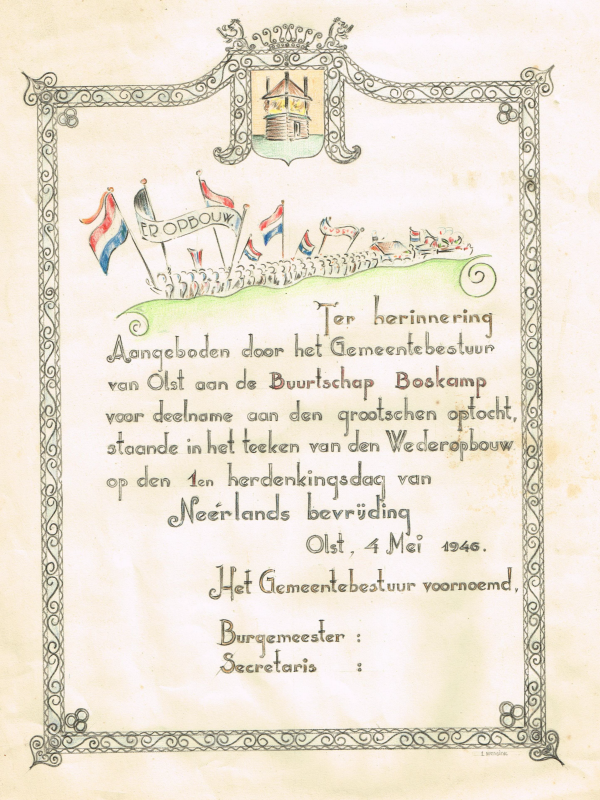 EROPBOUW
Ter herinnering
Aangeboden door het Gemeentebestuur
van Olst aan de Buurtschap Boskamp
voor deelname aan den grootschen optocht,
staande in het teeken van den Wederopbouw
op den 1en herdenkingsdag van
Neérlands bevrijding
Olst, 4 Mei 1946.
Het Gemeentebestuur voornoemd,
Burgemeester :
Secretaris :